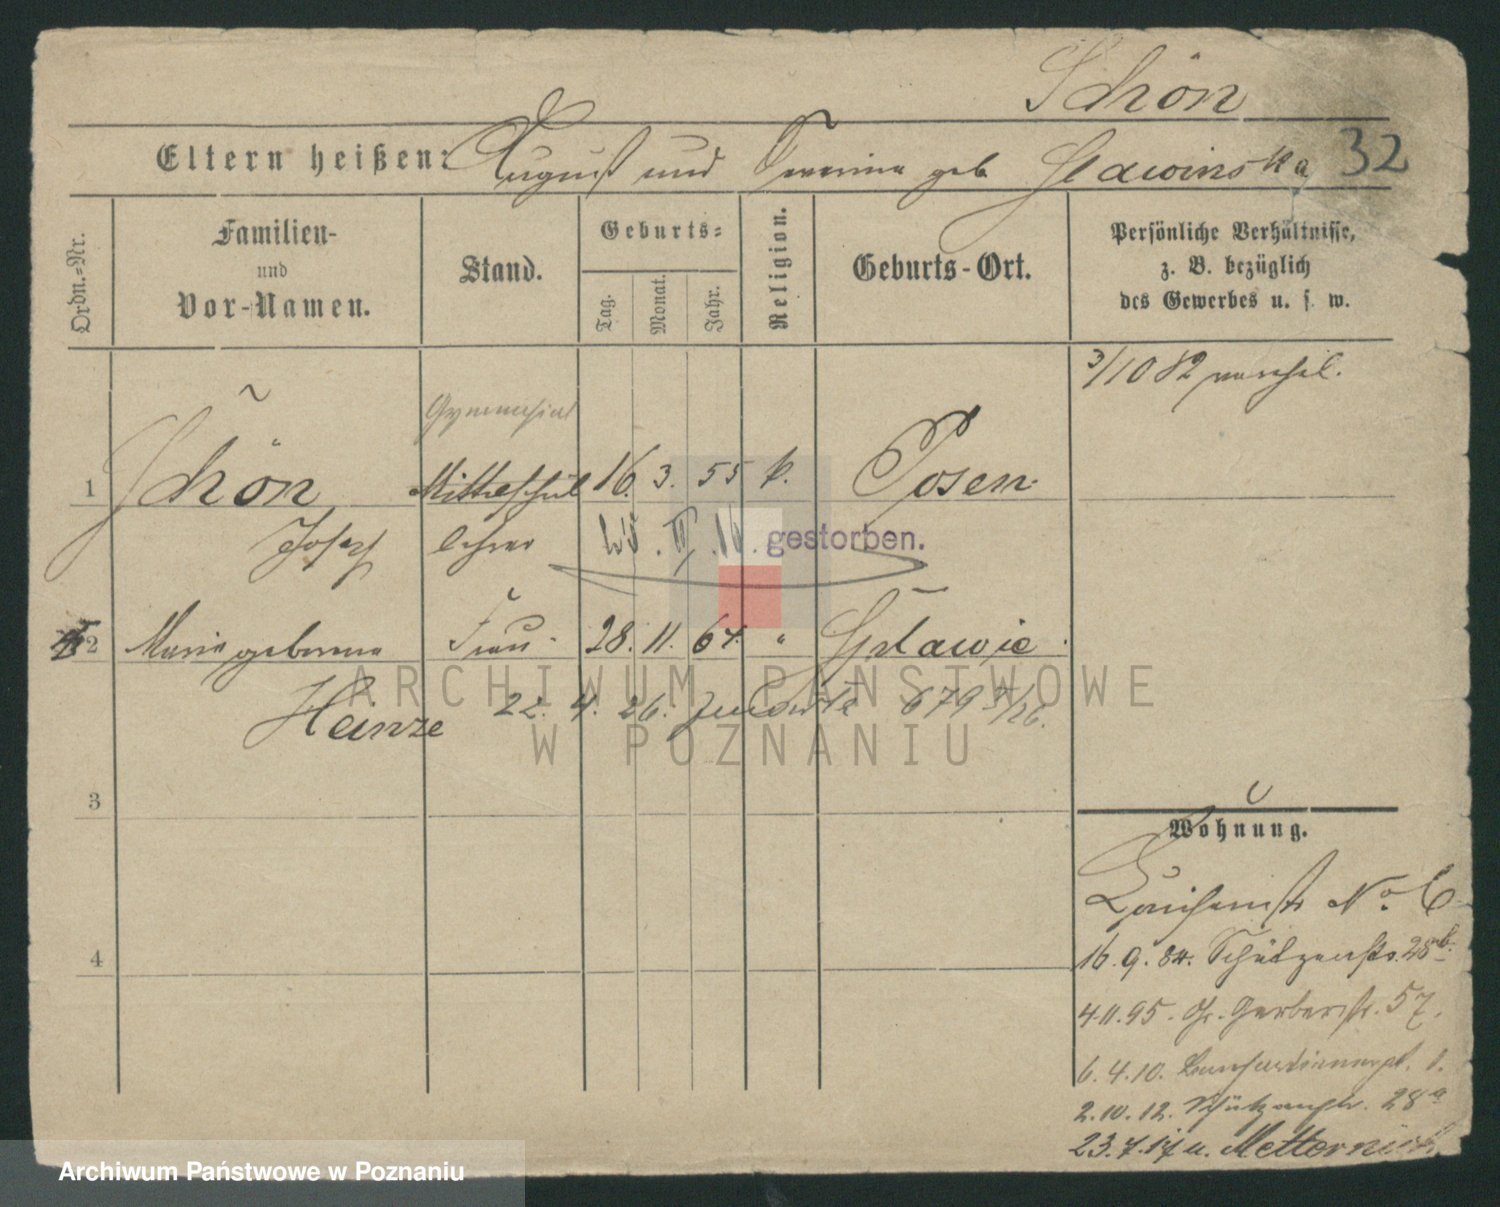 Schön
Eltern heißen: August und geb Glawinska 32
Ordn.-Nr.
Familien-
und
Vor-Namen.
Stand.
Geburts-
Tag.
Monat.
Jahr.
Religion.
Geburts-Ort.
Persönliche Verhältnisse,
z. B. bezüglich
des Gewerbes u. s. w.
3/10 82
Gymnasial
1 Schön Mittelschul 16. 3. 55 k. Posen
Josef lehrer gestorben.
2 Marie geborene Frau 28. 11. 67. "
Heinze 22. 4. 26.
ARCHIWUM PAŃSTWOWE
W POZNANIU
3
4
Wohnung.
Louisenstr No 6
16. 9. 84. Schützenstr. 28b.
4.11.95. Gr. Gerberstr. 57.
6. 4. 10. 1.
2.10.12. Schützenstr. 28a
23.7.17 n. Metternich
Archiwum Państwowe w Poznaniu